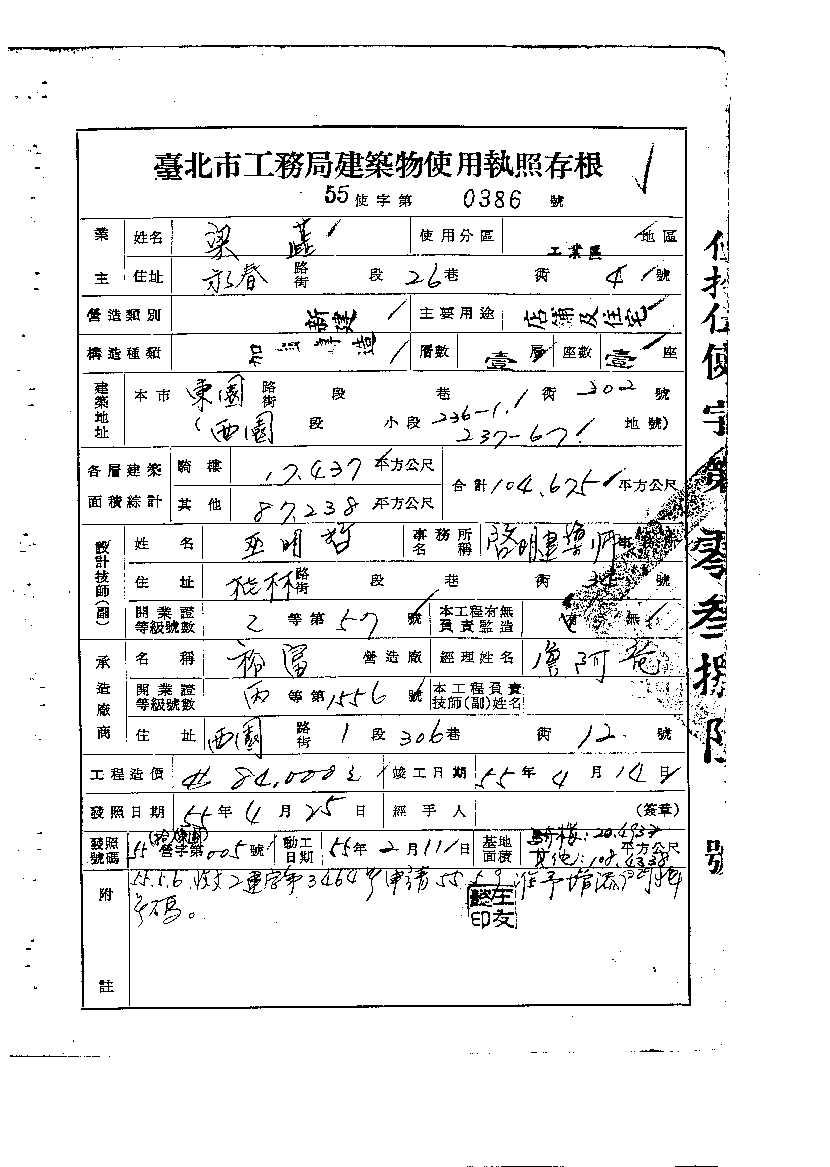 臺北市工務局建築物使用執照存根
55使字第 0386 號
業主 姓名 梁 使用分區 工業區 地區
住址 永春 路街 段 26 巷 街 4 號
營造類別 新建 主要用途 店舖及住宅
構造種類 加 磚造 層數 壹層 座數 壹座
建築地址 本市 東園 路街 段 巷 街 302 號
(西園 段 小段 236-1. 237-67 地號)
各層建築面積綜計 騎樓 17.437 平方公尺 合計 104.675 平方公尺
其他 87.238 平方公尺
設計技師(副) 姓名 巫明哲 事務所名稱 啓明建築師
住址 桂林 路街 段 巷 街 號
開業證等級號數 乙 等第 57 號 本工程有無負責監造 無
承造廠商 名稱 裕富 營造廠 經理姓名 詹阿
開業證等級號數 丙 等第 1556 號 本工程負責技師(副)姓名
住址 西園 路街 1 段 306 巷 街 12 號
工程造價 84,000 竣工日期 55 年 4 月 14 日
發照日期 55 年 4 月 25 日 經手人 (簽章)
發照號碼 55 營字第 005 號 動工日期 55 年 2 月 11 日 基地面積 騎樓:20.4937 其他:108.4338 平方公尺
附註 55.5.6. 收文工建字第3464號申請 55.5.9 准予增添門牌
號碼。
伍拾伍使字第零叁捌陸號